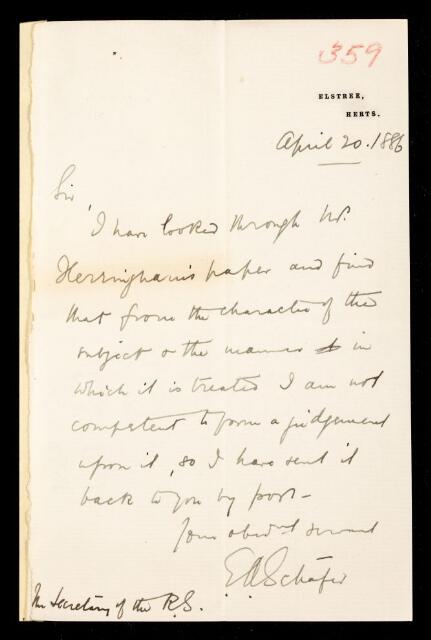 359
ELSTREE,
HERTS.
April 20. 1886
Sir,
I have looked through Mr.
Herringham's paper and find
that from the character of the
subject & the manner in
which it is treated I am not
competent to form a judgement
upon it, so I have sent it
back to you by post -
Your obedt servant
E.A. Schäfer
The Secretary of the R.S.